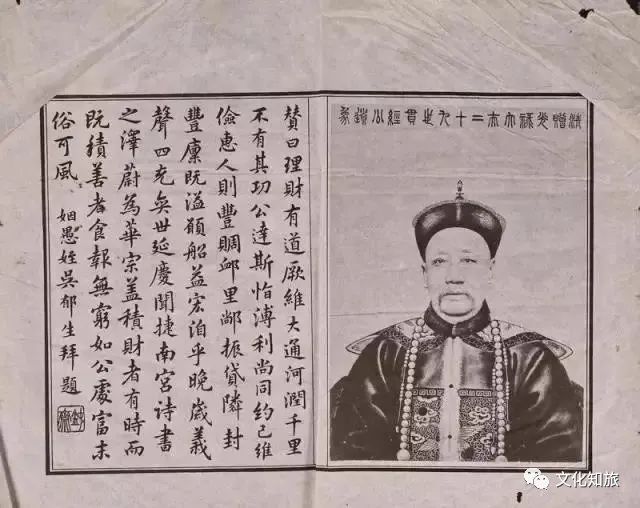 清贈光祿大夫二十九世貫經公遺象
贊曰理財有道厥維大通河潤千里
不有其功公達斯恉溥利尚同約己維
儉惠人則豐賙卹里鄙振貸隣封
豐廩既溢願船益宏洎乎晚歲義
聲四充奕世延慶聞捷南宮詩書
之澤蔚為華宗蓋積財者有時而
既積善者食報無窮如公處富末
俗可風
姻愚姪吳郁生拜題
文化知旅